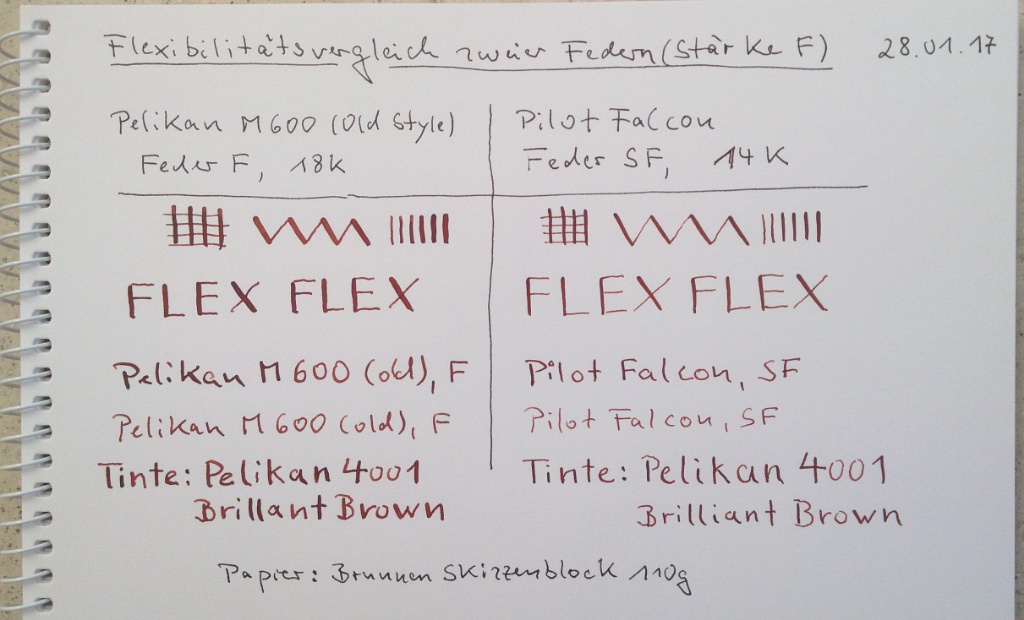 Flexibilitätsvergleich zweier Federn (Stärke F) 28.01.17
Pelikan M600 (Old Style)
Feder F, 18K
Pilot Falcon
Feder SF, 14K
FLEX FLEX
Pelikan M600 (old), F
Pelikan M600 (old), F
Tinte: Pelikan 4001
Brillant Brown
FLEX FLEX
Pilot Falcon, SF
Pilot Falcon, SF
Tinte: Pelikan 4001
Brilliant Brown
Papier: Brunnen Skizzenblock 110g